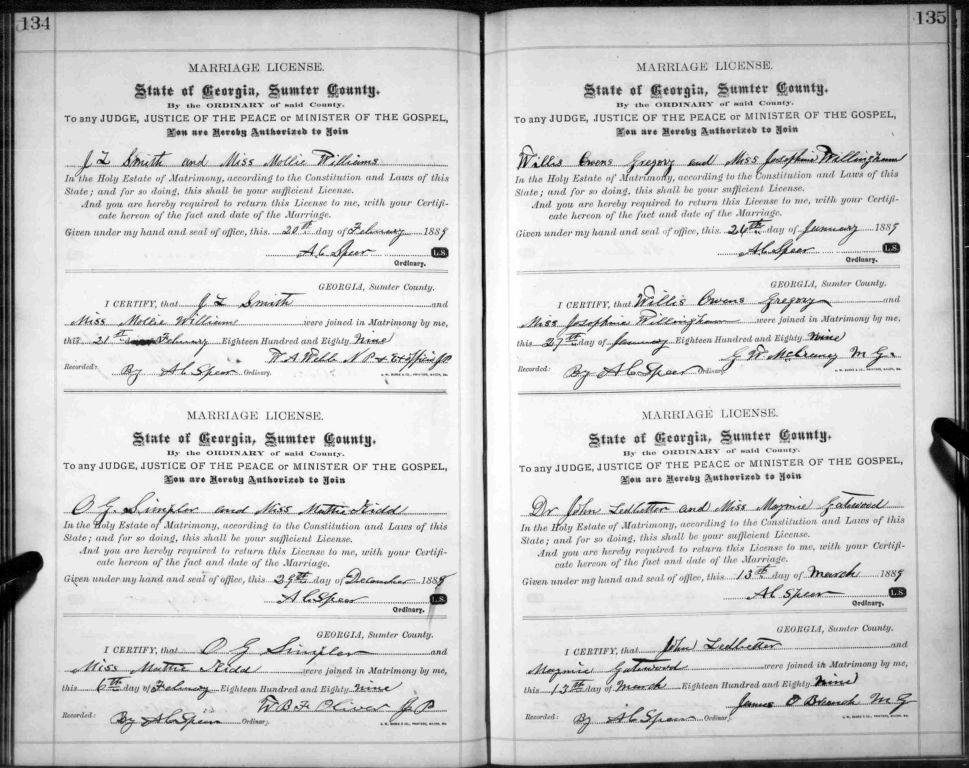 134
MARRIAGE LICENSE.
State of Georgia, Sumter County.
By the ORDINARY of said County.
To any JUDGE, JUSTICE OF THE PEACE or MINISTER OF THE GOSPEL,
You are Hereby Authorized to Join
J L Smith and Miss Mollie Williams
In the Holy Estate of Matrimony, according to the Constitution and Laws of this
State; and for so doing, this shall be your sufficient License.
And you are hereby required to return this License to me, with your Certifi-
cate hereon of the fact and date of the Marriage.
Given under my hand and seal of office, this 20th day of February 1889
A C Speer L.S.
Ordinary.
GEORGIA, Sumter County.
I CERTIFY, that J L Smith and
Miss Mollie William were joined in Matrimony by me,
this 21st February Eighteen Hundred and Eighty Nine
W A Webb N P & Ex officio J P
Recorded: By A C Speer Ordinary.
MARRIAGE LICENSE.
State of Georgia, Sumter County.
By the ORDINARY of said County.
To any JUDGE, JUSTICE OF THE PEACE or MINISTER OF THE GOSPEL,
You are Hereby Authorized to Join
O G Simpler and Miss Mattie Kidd
In the Holy Estate of Matrimony, according to the Constitution and Laws of this
State; and for so doing, this shall be your sufficient License.
And you are hereby required to return this License to me, with your Certifi-
cate hereon of the fact and date of the Marriage.
Given under my hand and seal of office, this 29th day of December 188
A C Speer L.S.
Ordinary.
GEORGIA, Sumter County.
I CERTIFY, that O G Simpler and
Miss Mattie Kidd were joined in Matrimony by me,
this 6th day of February Eighteen Hundred and Eighty nine
W B F Oliver J P
Recorded: By A C Speer Ordinary.
135
MARRIAGE LICENSE.
State of Georgia, Sumter County.
By the ORDINARY of said County.
To any JUDGE, JUSTICE OF THE PEACE or MINISTER OF THE GOSPEL,
You are Hereby Authorized to Join
Willis Owens Gregory and Miss Josephine Willingham
In the Holy Estate of Matrimony, according to the Constitution and Laws of this
State; and for so doing, this shall be your sufficient License.
And you are hereby required to return this License to me, with your Certifi-
cate hereon of the fact and date of the Marriage.
Given under my hand and seal of office, this 24th day of January 1889
A C Speer L.S.
Ordinary.
GEORGIA, Sumter County.
I CERTIFY, that Willis Owens Gregory and
Miss Josephine Willingham were joined in Matrimony by me,
this 27th day of January Eighteen Hundred and Eighty Nine
G W M G.
Recorded: By A C Speer Ordinary.
MARRIAGE LICENSE.
State of Georgia, Sumter County.
By the ORDINARY of said County.
To any JUDGE, JUSTICE OF THE PEACE or MINISTER OF THE GOSPEL,
You are Hereby Authorized to Join
Dr John Ledbetter and Miss Maymie Gatewood
In the Holy Estate of Matrimony, according to the Constitution and Laws of this
State; and for so doing, this shall be your sufficient License.
And you are hereby required to return this License to me, with your Certifi-
cate hereon of the fact and date of the Marriage.
Given under my hand and seal of office, this 13th day of March 1889
A C Speer L.S.
Ordinary.
GEORGIA, Sumter County.
I CERTIFY, that John Ledbetter and
Maymie Gatewood were joined in Matrimony by me,
this 13th day of March Eighteen Hundred and Eighty Nine
James O Branch M G
Recorded: By A C Speer Ordinary.